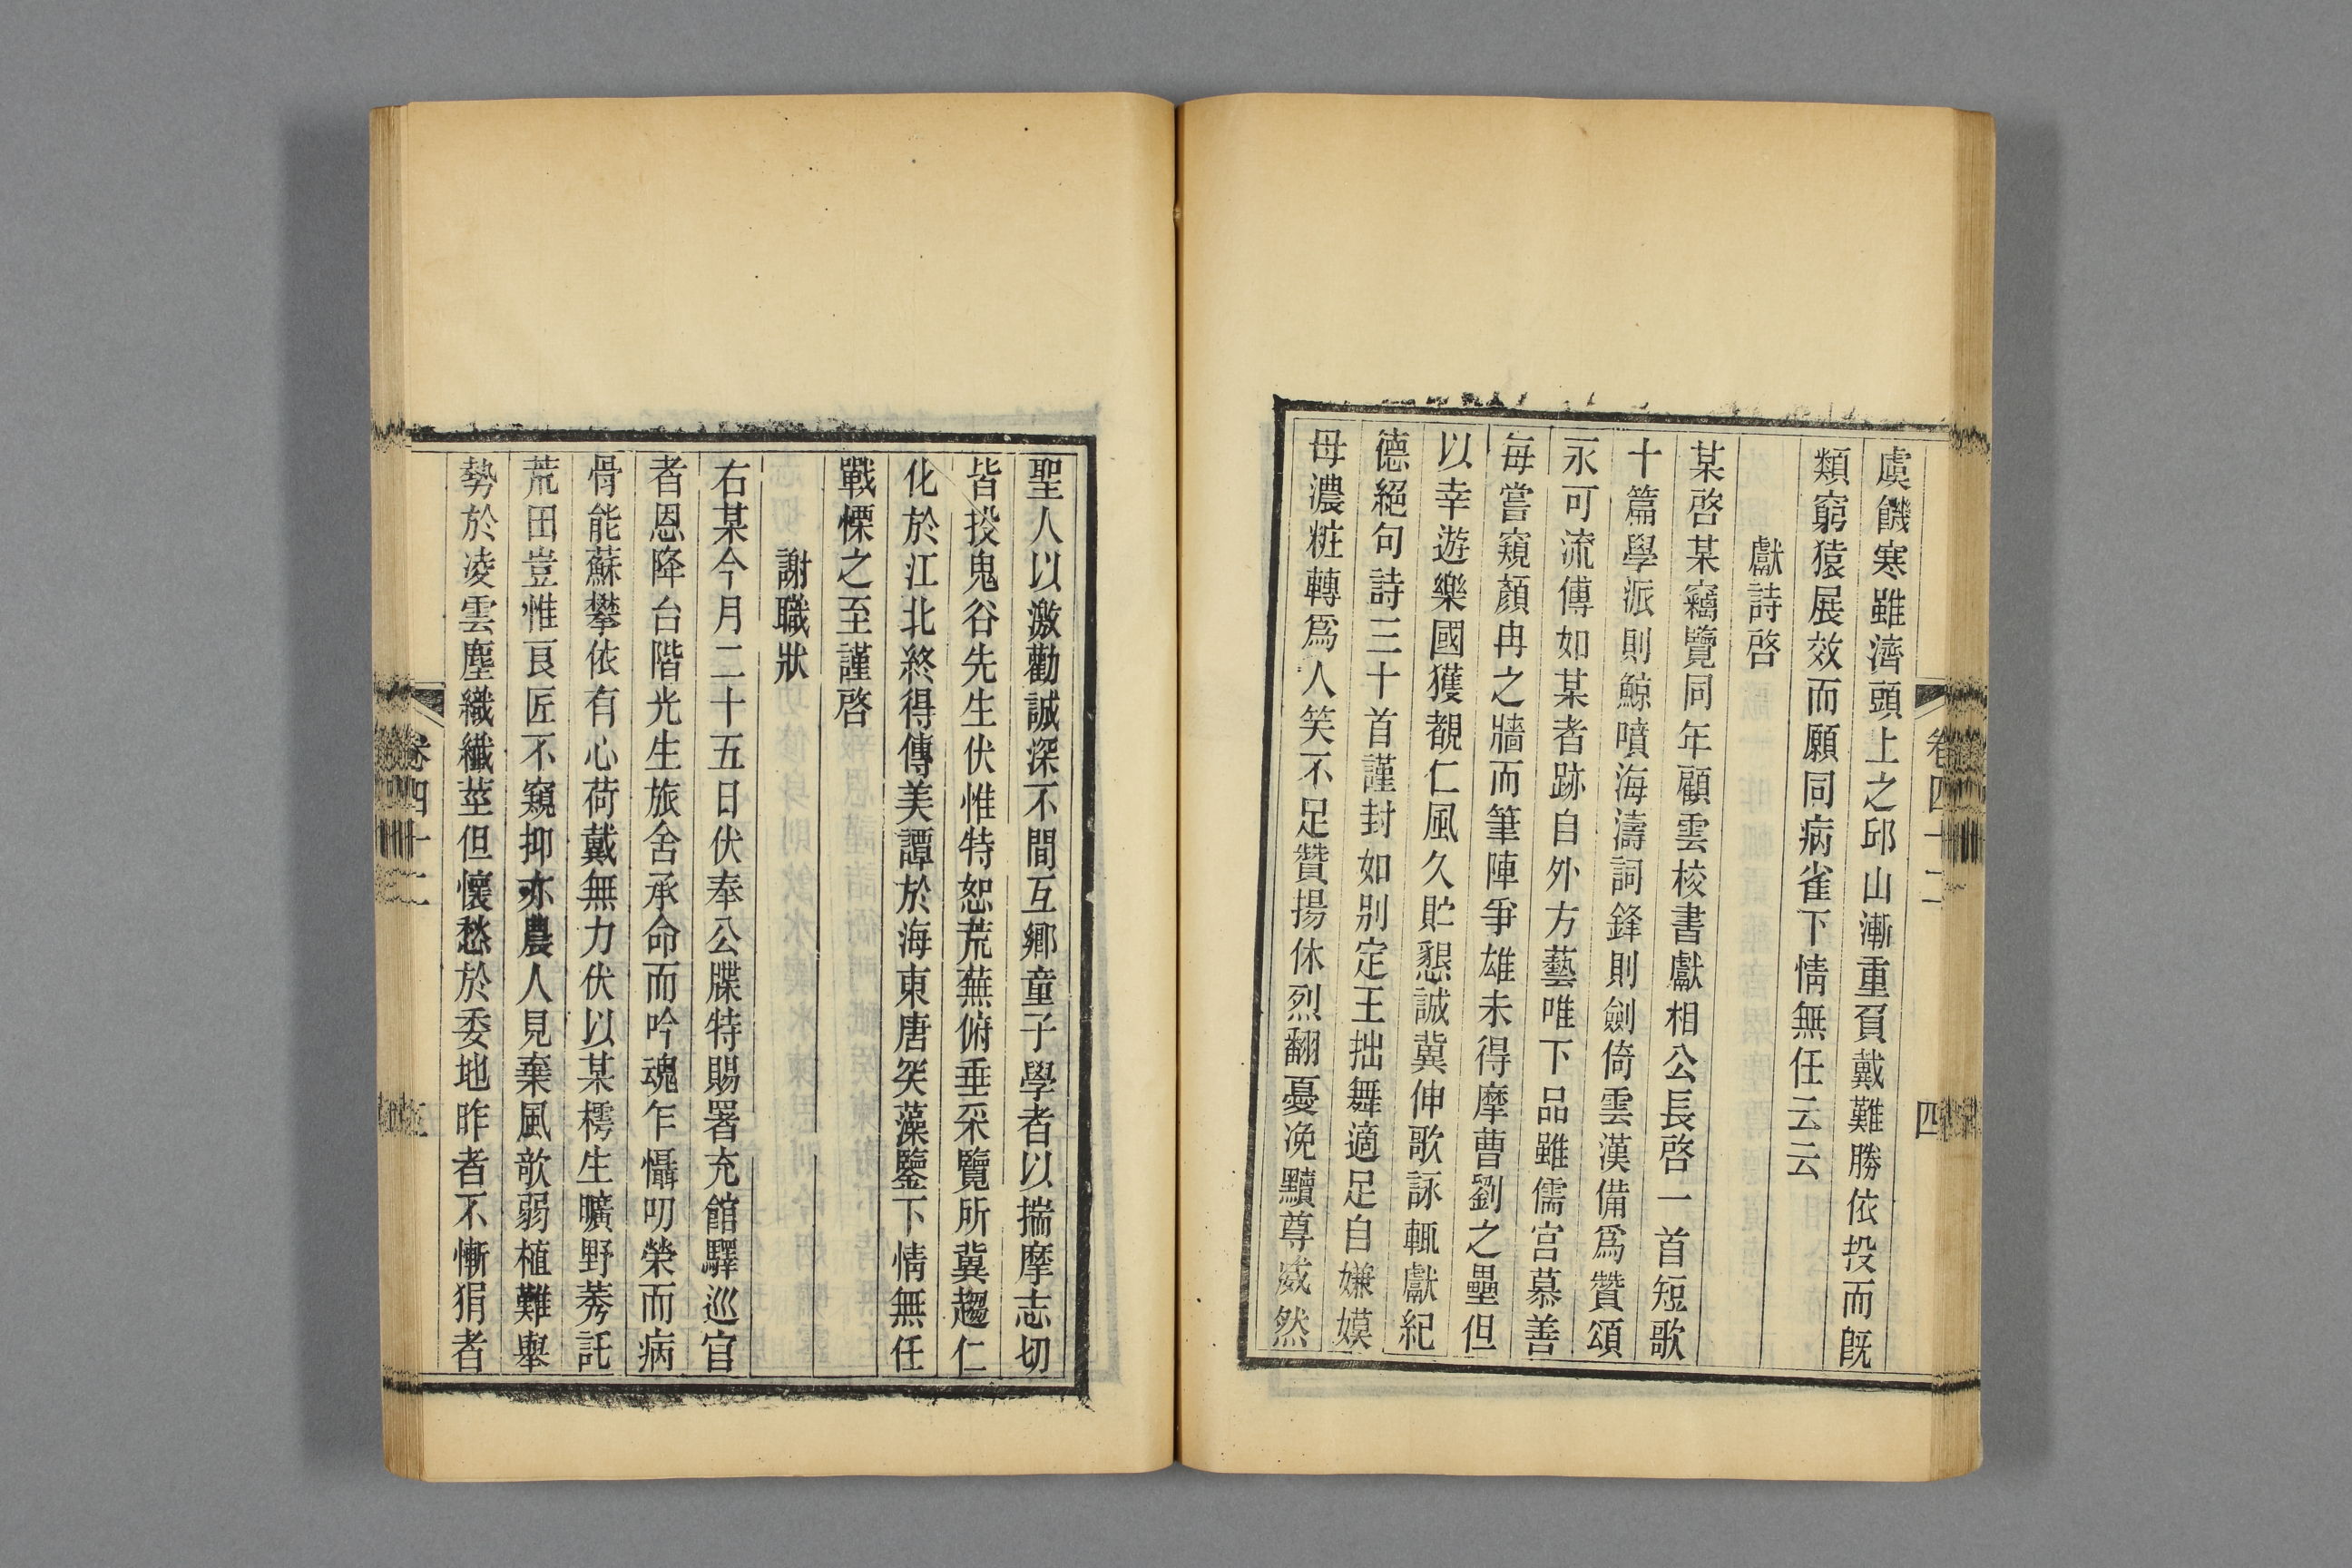 虞饑寒雖濟頭上之邱山漸重負戴難勝依投而旣
類窮猿展效而願同病雀下情無任云云
獻詩啓
某啓某竊覽同年顧雲校書獻相公長啓一首短歌
十篇學派則鯨噴海濤詞鋒則劍倚雲漢備爲贊頌
永可流傳如某者跡自外方藝唯下品雖儒宮慕善
每嘗窺顏冉之牆而筆陣爭雄未得摩曹劉之壘但
以幸遊樂國獲覩仁風久貯懇誠冀伸歌詠輒獻紀
德絕句詩三十首謹封如別定王拙舞適足自嫌嫫
母濃粧轉爲人笑不足贊揚休烈翻憂浼黷尊嚴然
卷四十二
四
聖人以激勸誠深不間互鄉童子學者以揣摩志切
皆投鬼谷先生伏惟特恕荒蕪俯垂采覽所冀趨仁
化於江北終得傳美譚於海東唐突藻鑒下情無任
戰慄之至謹啓
謝職狀
右某今月二十五日伏奉公牒特賜署充館驛巡官
者恩降台階光生旅舍承命而吟魂乍懾叨榮而病
骨能蘇攀依有心荷戴無力伏以某樗生曠野莠託
荒田豈惟良匠不窺抑亦農人見棄風欹弱植難舉
勢於凌雲塵織纖莖但懷愁於委地昨者不慚狷者
卷四十二
五